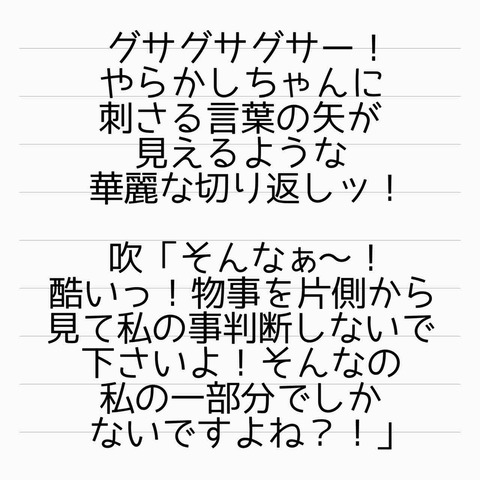 グサグサグサー！
やらかしちゃんに
刺さる言葉の矢が
見えるような
華麗な切り返しッ！
吹「そんなぁ～！
酷いっ！物事を片側から
見て私の事判断しないで
下さいよ！そんなの
私の一部分でしか
ないですよね？！」